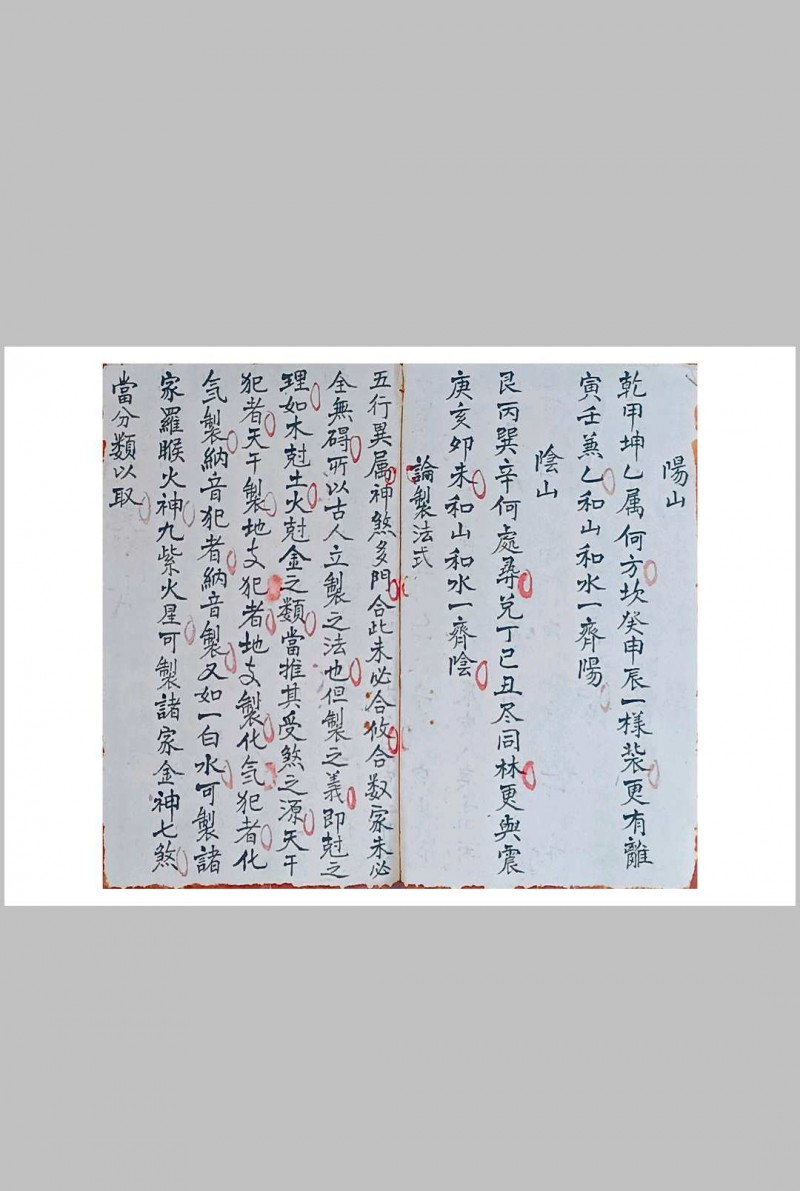 陽山
乾甲坤乙属何方坎癸申辰一樣裝更有離
寅壬兼乙和山和水一齊陽
陰山
艮丙巽辛何處尋兌丁巳丑尽同林更與震
庚亥卯未和山和水一齊陰
論製法式
五行異属神煞多門合此未必合攸合数家未必
全無碍所以古人立製之法也但製之義即尅之
理如木尅土火尅金之類當推其受煞之源天干
犯者天干製地支犯者地支製化氣犯者化
氣製納音犯者納音製又如一白水可製諸
家羅睺火神九紫火星可製諸家金神七煞
當分類以取